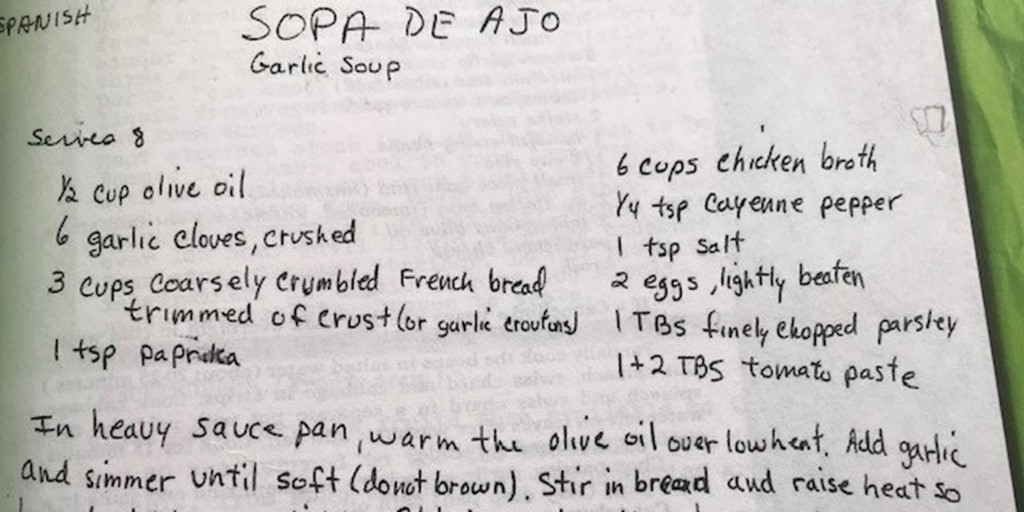 SPANISH
SOPA DE AJO
Garlic Soup
Serves 8
½ cup olive oil
6 garlic cloves, crushed
3 cups coarsely crumbled French bread
trimmed of crust (or garlic croutons)
1 tsp paprika
6 cups chicken broth
¼ tsp cayenne pepper
1 tsp salt
2 eggs, lightly beaten
1 TBS finely chopped parsley
1+2 TBS tomato paste
In heavy sauce pan, warm the olive oil over low heat. Add garlic
and simmer until soft (do not brown). Stir in bread and raise heat so